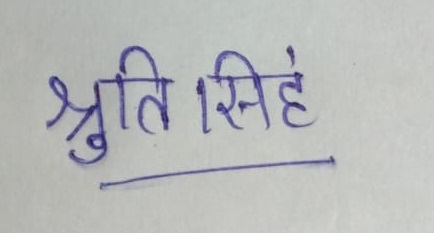 श्रुति सिहं